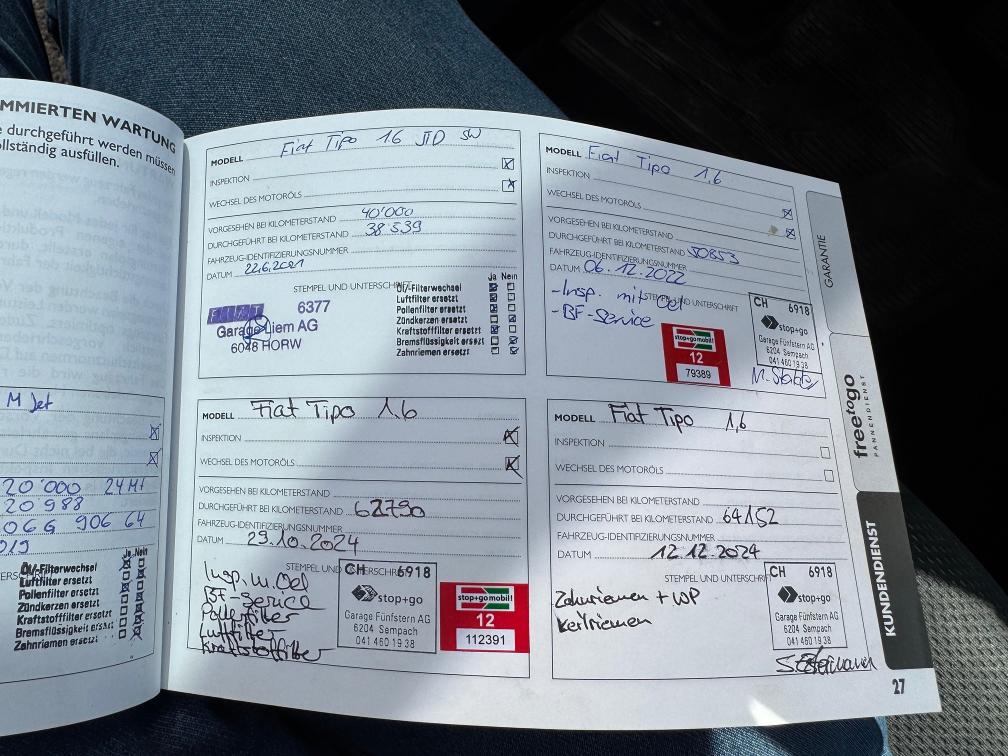 MMIERTEN WARTUNG
e durchgeführt werden müssen
ollständig ausfüllen.
M Jet
20'000 24 Mt
20'988
06G 906 64
019
Ja Nein
Öl/-Filterwechsel
Luftfilter ersetzt
Pollenfilter ersetzt
Zündkerzen ersetzt
Kraftstofffilter ersetzt
Bremsflüssigkeit ersetzt
Zahnriemen ersetzt
MODELL Fiat Tipo 1.6 JTD SW
INSPEKTION
WECHSEL DES MOTORÖLS
VORGESEHEN BEI KILOMETERSTAND 40'000
DURCHGEFÜHRT BEI KILOMETERSTAND 38'539
FAHRZEUG-IDENTIFIZIERUNGSNUMMER
DATUM 22.6.2021
STEMPEL UND UNTERSCHRIFT
Ja Nein
Öl/-Filterwechsel
Luftfilter ersetzt
Pollenfilter ersetzt
Zündkerzen ersetzt
Kraftstofffilter ersetzt
Bremsflüssigkeit ersetzt
Zahnriemen ersetzt
FIAT 6377
Garage Liem AG
6048 HORW
MODELL Fiat Tipo 1.6
INSPEKTION
WECHSEL DES MOTORÖLS
VORGESEHEN BEI KILOMETERSTAND
DURCHGEFÜHRT BEI KILOMETERSTAND 50853
FAHRZEUG-IDENTIFIZIERUNGSNUMMER
DATUM 06.12.2022
STEMPEL UND UNTERSCHRIFT
- Insp. mit Oel
- BF-Service
stop+go mobil!
12
79389
CH 6918
stop+go
Garage Fünfstern AG
6204 Sempach
041 460 19 38
MODELL Fiat Tipo 1.6
INSPEKTION
WECHSEL DES MOTORÖLS
VORGESEHEN BEI KILOMETERSTAND
DURCHGEFÜHRT BEI KILOMETERSTAND 62790
FAHRZEUG-IDENTIFIZIERUNGSNUMMER
DATUM 29.10.2024
STEMPEL UND UNTERSCHRIFT
Insp. m. Oel
BF-Service
Pollenfilter
Luftfilter
Kraftstofffilter
CH 6918
stop+go
Garage Fünfstern AG
6204 Sempach
041 460 19 38
stop+go mobil!
12
112391
MODELL Fiat Tipo 1,6
INSPEKTION
WECHSEL DES MOTORÖLS
VORGESEHEN BEI KILOMETERSTAND
DURCHGEFÜHRT BEI KILOMETERSTAND 64152
FAHRZEUG-IDENTIFIZIERUNGSNUMMER
DATUM 12.12.2024
STEMPEL UND UNTERSCHRIFT
Zahnriemen + WP
Keilriemen
CH 6918
stop+go
Garage Fünfstern AG
6204 Sempach
041 460 19 38
GARANTIE
freetogo
PANNENDIENST
KUNDENDIENST
27